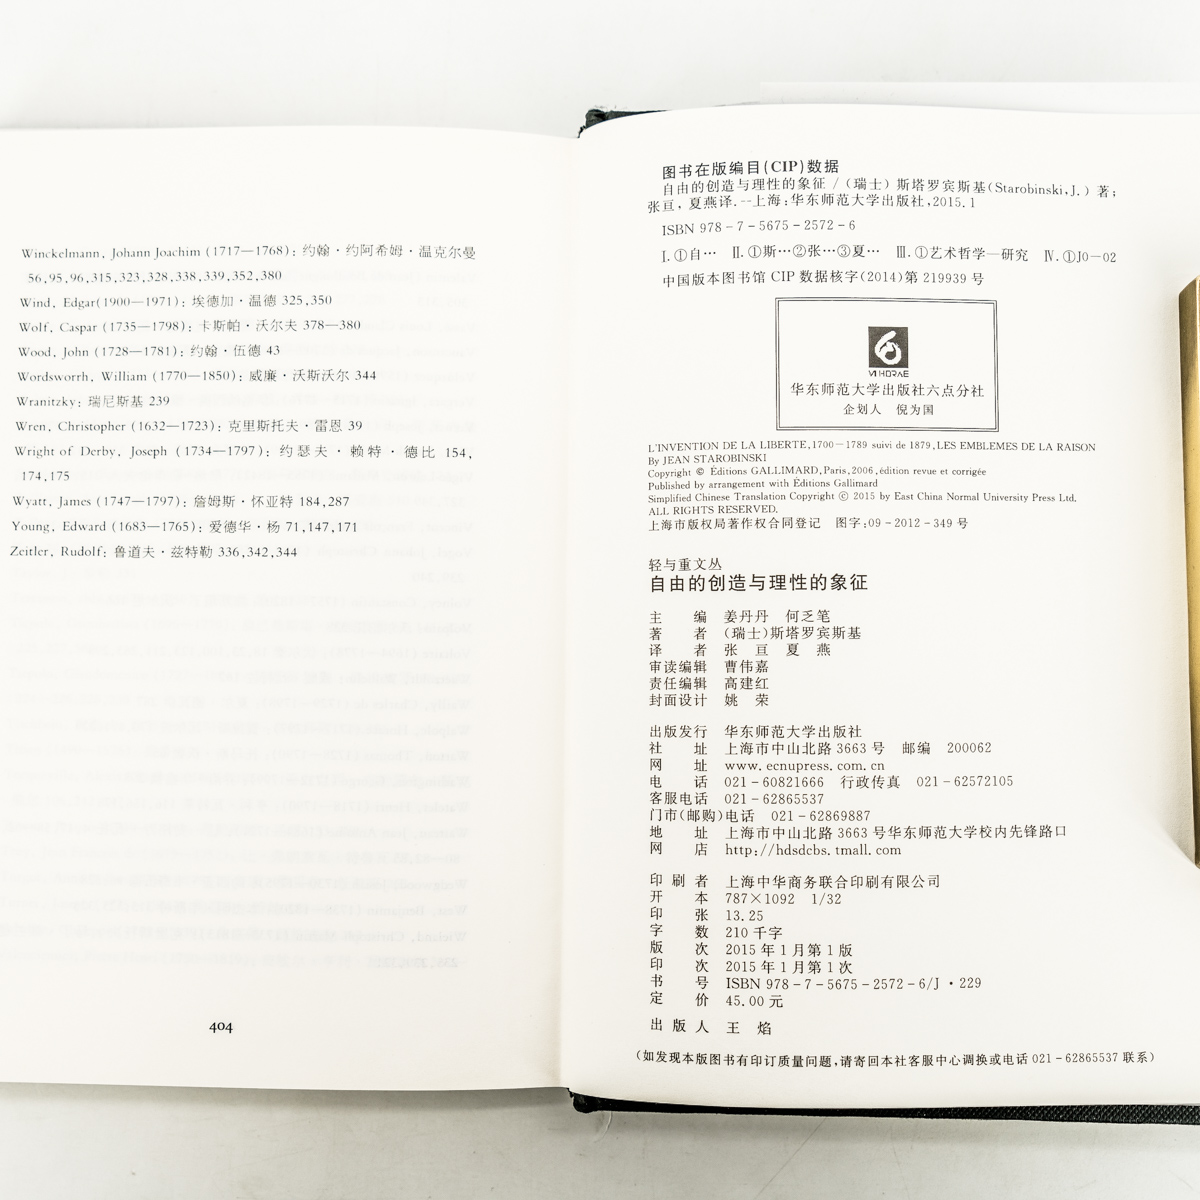 Winckelmann, Johann Joachim (1717—1768): 约翰·约阿希姆·温克尔曼
56,95,96,315,323,328,338,339,352,380
Wind, Edgar(1900—1971): 埃德加·温德 325,350
Wolf, Caspar (1735—1798): 卡斯帕·沃尔夫 378—380
Wood, John (1728—1781): 约翰·伍德 43
Wordsworrh, William (1770—1850): 威廉·沃斯沃尔 344
Wranitzky: 瑞尼斯基 239
Wren, Christopher (1632—1723): 克里斯托夫·雷恩 39
Wright of Derby, Joseph (1734—1797): 约瑟夫·赖特·德比 154,
174,175
Wyatt, James (1747—1797): 詹姆斯·怀亚特 184,287
Young, Edward (1683—1765): 爱德华·杨 71,147,171
Zeitler, Rudolf: 鲁道夫·兹特勒 336,342,344
404
图书在版编目(CIP)数据
自由的创造与理性的象征 / (瑞士) 斯塔罗宾斯基(Starobinski,J.) 著;
张亘, 夏燕译. --上海: 华东师范大学出版社, 2015.1
ISBN 978-7-5675-2572-6
Ⅰ.①自… Ⅱ.①斯…②张…③夏… Ⅲ.①艺术哲学—研究 Ⅳ.①J0-02
中国版本图书馆 CIP 数据核字(2014)第 219939 号
VI HORAE
华东师范大学出版社六点分社
企划人 倪为国
L'INVENTION DE LA LIBERTE,1700-1789 suivi de 1879,LES EMBLEMES DE LA RAISON
By JEAN STAROBINSKI
Copyright © Éditions GALLIMARD,Paris,2006,édition revue et corrigée
Published by arrangement with Éditions Gallimard
Simplified Chinese Translation Copyright © 2015 by East China Normal University Press Ltd.
ALL RIGHTS RESERVED.
上海市版权局著作权合同登记 图字:09-2012-349 号
轻与重文丛
自由的创造与理性的象征
主 编 姜丹丹 何乏笔
著 者 (瑞士)斯塔罗宾斯基
译 者 张 亘 夏 燕
审读编辑 曹伟嘉
责任编辑 高建红
封面设计 姚 荣
出版发行 华东师范大学出版社
社 址 上海市中山北路 3663 号 邮编 200062
网 址 www.ecnupress.com.cn
电 话 021-60821666 行政传真 021-62572105
客服电话 021-62865537
门市(邮购)电话 021-62869887
地 址 上海市中山北路 3663 号华东师范大学校内先锋路口
网 店 http://hdsdcbs.tmall.com
印 刷 者 上海中华商务联合印刷有限公司
开 本 787×1092 1/32
印 张 13.25
字 数 210 千字
版 次 2015 年 1 月第 1 版
印 次 2015 年 1 月第 1 次
书 号 ISBN 978-7-5675-2572-6/J·229
定 价 45.00 元
出 版 人 王 焰
(如发现本版图书有印订质量问题,请寄回本社客服中心调换或电话 021-62865537 联系)